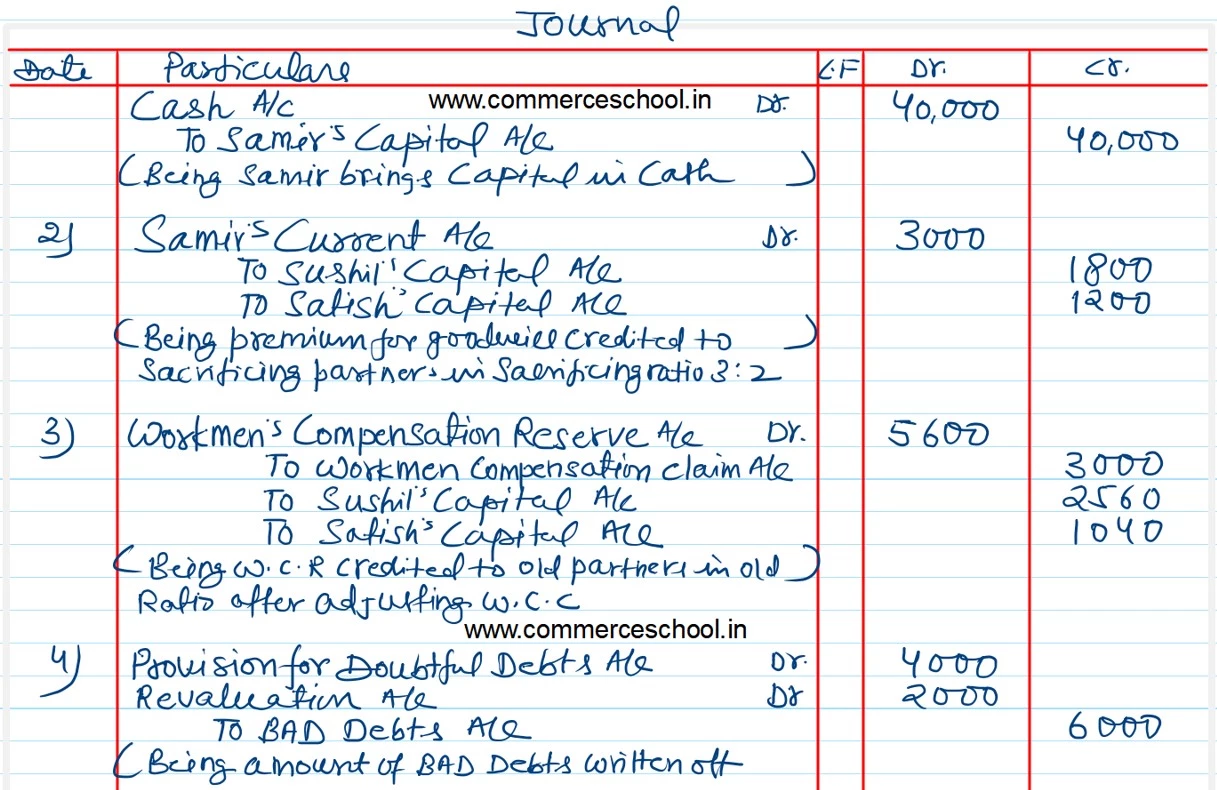 Journal
Date Particulars L.F Dr. Cr.
Cash A/c www.commerceschool.in Dr. 40,000
To Samir's Capital A/c 40,000
(Being Samir brings Capital in Cash )
2) Samir's Current A/c Dr. 3000
To Sushil's Capital A/c 1800
To Satish's Capital A/c 1200
(Being premium for goodwill credited to )
Sacrificing partners in Sacrificing ratio 3:2
3) Workmen's Compensation Reserve A/c Dr. 5600
To Workmen Compensation claim A/c 3000
To Sushil's Capital A/c 2560
To Satish's Capital A/c 1040
(Being W.C.R credited to old partners in old )
Ratio after adjusting W.C.C
www.commerceschool.in
4) Provision for Doubtful Debts A/c Dr. 4000
Revaluation A/c Dr 2000
To BAD Debts A/c 6000
(Being amount of BAD Debts written off